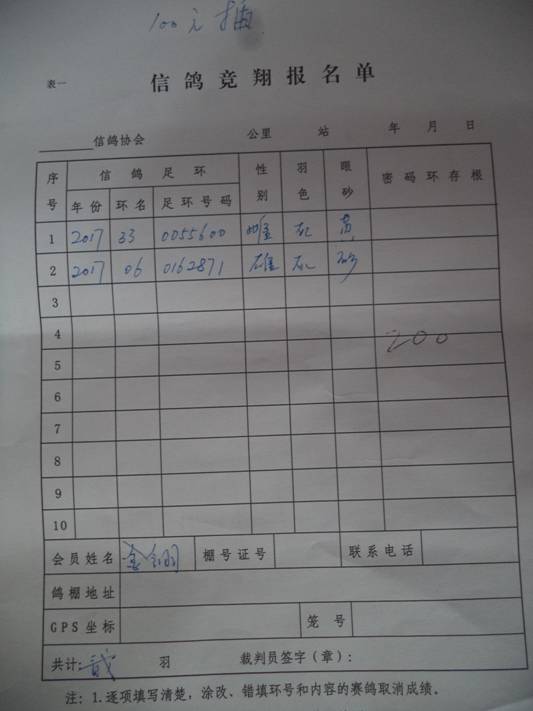 100元插
表一
信鸽竞翔报名单
信鸽协会 公里 站 年 月 日
序号 信鸽足环 性别 羽色 眼砂 密码环存根
年份 环名 足环号码
1 2017 33 0055600 雌 灰 黄
2 2017 06 0162871 雄 灰 砂
3
4
200
5
6
7
8
9
10
会员姓名 金钢 棚号证号 联系电话
鸽棚地址
GPS坐标 笼号
共计: 贰 羽 裁判员签字(章):
注: 1.逐项填写清楚, 涂改、错填环号和内容的赛鸽取消成绩。